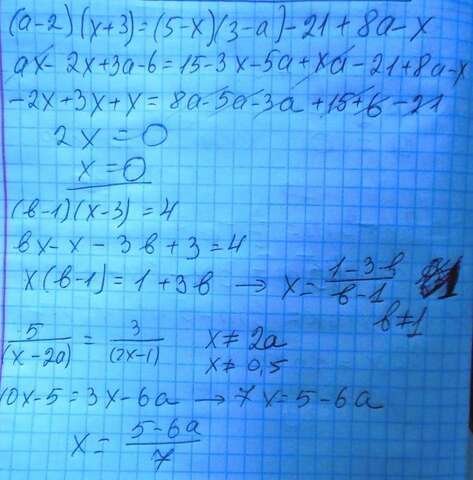 (a-2)(x+3)=(5-x)(3-a)-21+8a-x
ax-2x+3a-6=15-3x-5a+xa-21+8a-x
-2x+3x+x=8a-5a-3a+15+6-21
2x=0
x=0
(в-1)(x-3)=4
вx-x-3в+3=4
x(в-1)=1+3в → x=(1-3в)/(в-1)
в≠1
5/(x-2a)=3/(2x-1) x≠2a
x≠0,5
10x-5=3x-6a → 7x=5-6a
x=(5-6a)/7